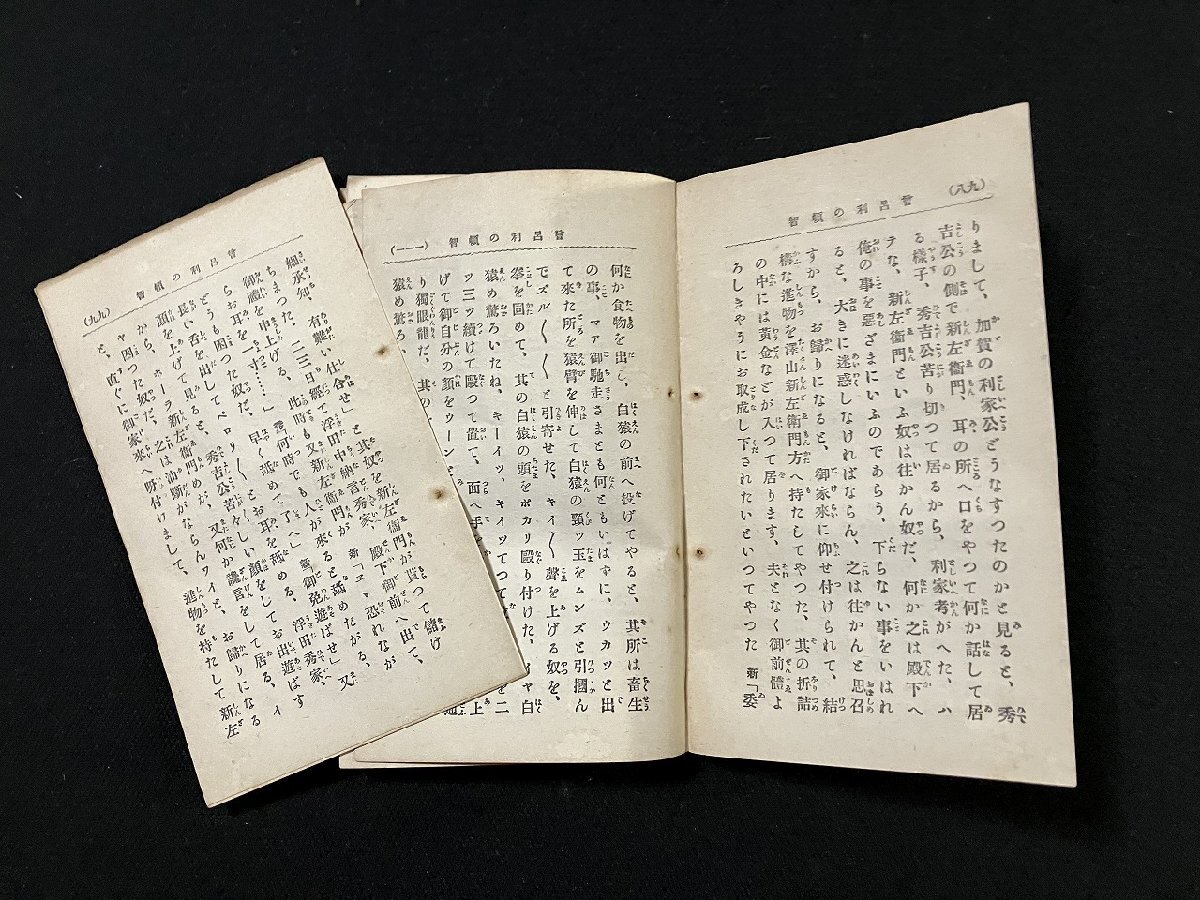 （九八）
曾呂利の頓智
りまして、加賀の利家公どうなすつたのかと見ると、秀
吉公の側で新左衞門、耳の所へ口をやつて何か話して居
る樣子、秀吉公苦り切つて居るから、利家考がへた、ハ
テな、新左衞門といふ奴は往かん奴だ、何か之は殿下へ
俺の事を惡ざまにいふのであらう、下らない事をいはれ
ると、大きに迷惑しなければならん、之は往かんと思召
すから、お歸りになると、御家來に仰せ付けられて、結
構な進物を澤山新左衞門方へ持たしてやつた、其の折詰
の中には黃金などが入つて居ります、夫となく御前體よ
ろしきやうにお取成し下されたいといつてやつた 新「委
曾呂利の頓智
（一一一）
何か食物を出し、白猿の前へ投げてやると、其所は畜生
の事、マア御馳走さまとも何ともいはずに、ウカッと出
て來た所を猿臂を伸して白猿の頸ッ玉をムンズと引摑ん
でズル〳〵〳〵と引寄せた、キイ〳〵聲を上げる奴を、
拳を固めて、其の白猿の頭をポカリ毆り付けた、
猿め驚ろいたね、キーイッ、キイッてつて
ッ三ッ續けて毆つて置て、面へ手を
げて御自分の顏をウーンと
り獨眼龍だ、其の
猿め驚ろ、
曾呂利の頓智
（九九）
細承知、有難い仕合せ」と其奴を新左衞門が貰つて儲け
ちまつた、二三日經て浮田中納言秀家、殿下御前へ出て、
御禮を申上げる、此時も又新左衞門が 新「エヽ恐れなが
らお耳を一寸……」 秀「何時でも人が來ると舐めたがる、又
どうも困つた奴だ、早く舐めて了へ」 新「御免遊ばせ」ペ
ロリ〳〵とお耳を舐める、浮田秀家、
長い舌を出して秀吉公苦々しい顏をしてお出遊ばす
から、ホーラ新左衞門めが、又何か讒言をして居る、イ
ヤ困つた奴だ、之は油斷がならんワイと、お歸りになる
と、直ぐに御家來へ吩付けまして、進物を持たして新左